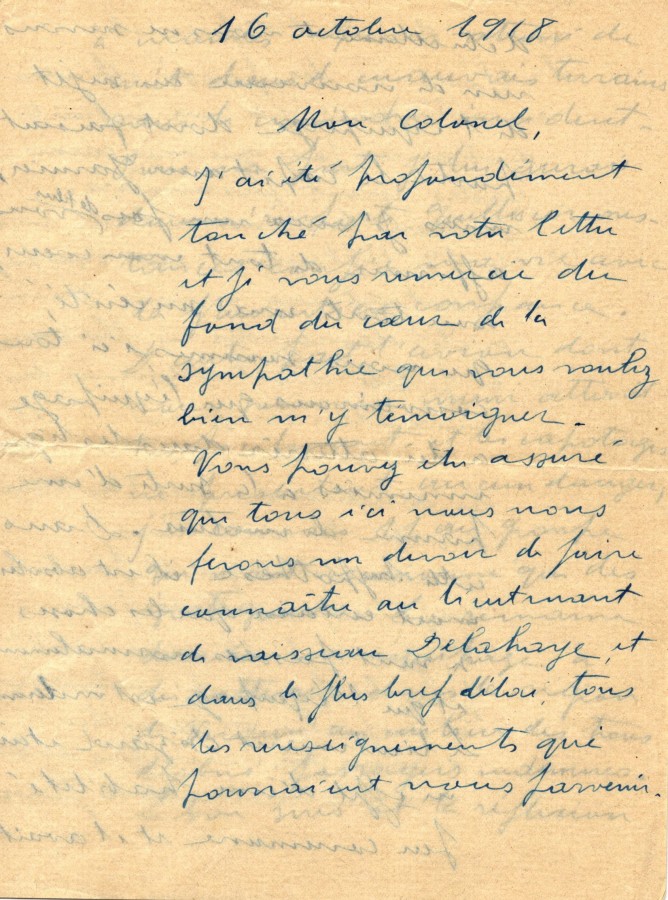 16 octobre 1918
Mon Colonel,
J'ai été profondément
touché par votre lettre
et je vous remercie du
fond du cœur de la
sympathie que vous voulez
bien m'y temoigner.
Vous pouvez être assuré
que tous ici nous nous
ferons un devoir de faire
connaître au lieutenant
de vaisseau Delahaye, et
dans le plus bref délai, tous
les renseignements qui
pourraient nous parvenir.